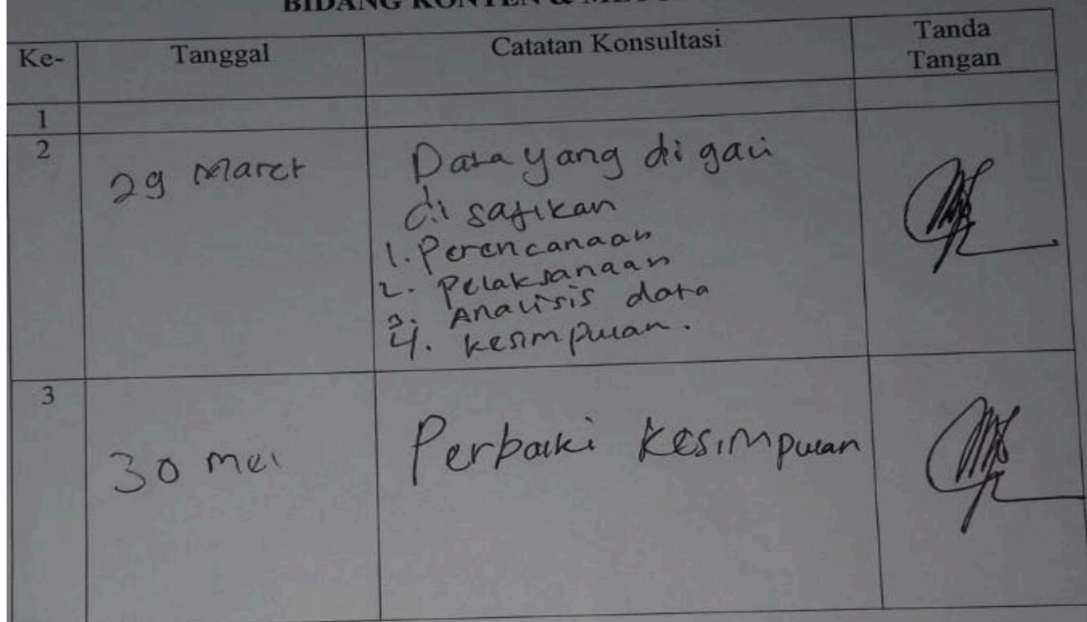 BIDANG KONTEN &
Ke-
Tanggal
Catatan Konsultasi
Tanda
Tangan
1
2
29 Maret
Data yang di gali
di sajikan
1. Perencanaan
2. Pelaksanaan
3. Analisis data
4. kesimpulan.
3
30 mei
Perbaiki kesimpulan